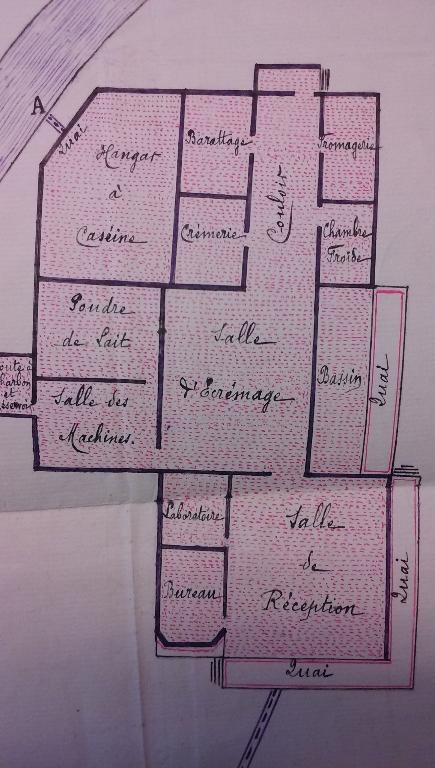 A
Quai
Hangar
à
Caséine
Barattage
Crèmerie
Couloir
Fromagerie
Chambre
Froide
Poudre
de Lait
Salle
d'Ecrémage
Bassin
Quai
Salle des
Machines.
et
Laboratoire
Bureau
Salle
de
Réception
Quai
Quai